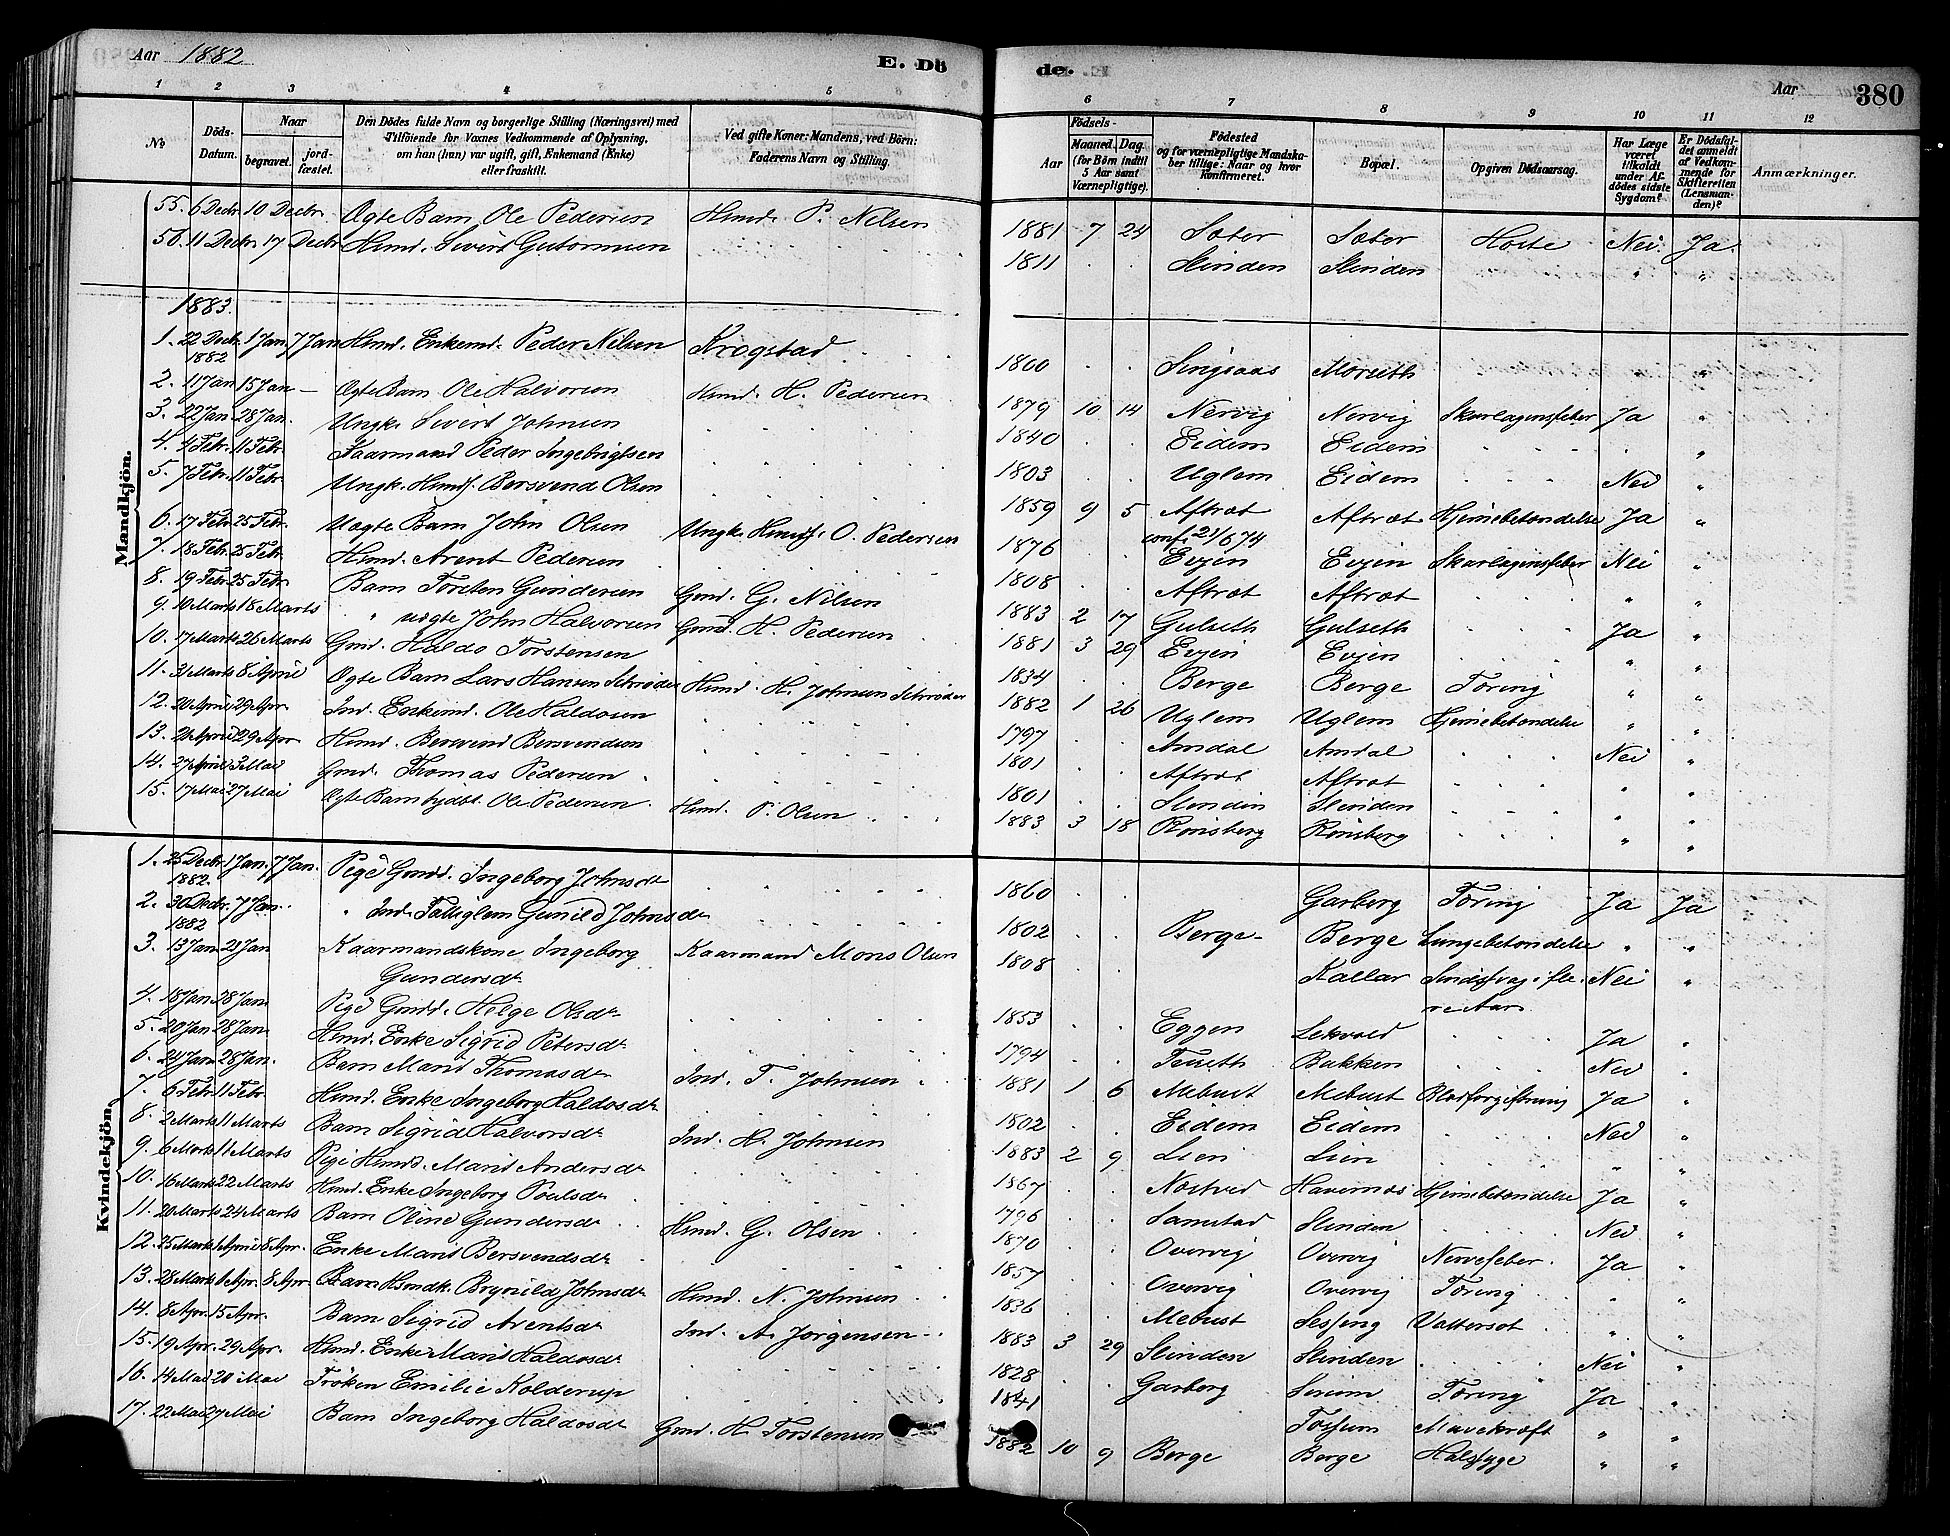 Aar 1882 E. Dö de. Aar 380
1 2 3 4 5 6 7 8 9 10 11 12
No Döds-Datum. Naar begravet. jord-fæstet. Den Dödes fulde Navn og borgerlige Stilling (Næringsvei) med Tilföiende for Voxnes Vedkommende af Oplysning, om han (hun) var ugift, gift, Enkemand (Enke) eller fraskilt. Ved gifte Koner: Mandens, ved Börn: Faderens Navn og Stilling. Födsels- Aar Maaned. Dag. (for Börn indtil 5 Aar samt Værnepligtige). Födested og for værnepligtige Mandska-ber tillige: Naar og hvor konfirmeret. Bopæl. Opgiven Dödsaarsag. Har Læge været tilkaldt under Af-dödes sidste Sygdom? Er Dödsfal-det anmeldt af Vedkom-mende for Skifteretten (Lensman-den)? Anmærkninger.
Mandkjön.
55. 6 Decbr. 10 Decbr. Ægte Barn Ole Pedersen Hmd. P. Nilsen 1881 7 24 Sæter Sæter Hoste Nei Ja
56. 11 Decbr 17 Decbr Hmd. Sivert Guttormsen 1811 Slinden Slinden " "
1883.
1. 22 Decbr. 1882 1 Jan. 7 Jan Hmd. Enkemd. Peder Nilsen Krogstad 1800 Singsaas Morseth "
2. 11 Jan 15 Jan – Ægte Barn Ole Halvorsen Hmd. H. Pedersen 1879 10 14 Nervig Nervig Skarlagensfeber Ja "
3. 22 Jan. 28 Jan. Ungk. Sivert Johnsen 1840 Eidem Eidem "
4. 4 Febr. 11 Febr. Kaarmand Peder Ingebrigtsen 1803 Uglem Eidem Nei "
5. 7 Febr. 11 Febr. Ungk. Hmds. Bersvend Olsen 1859 9 5 Aftræt conf. 21/6 74 Aftræt Hjernebetændelse Ja "
6. 17 Febr. 25 Febr. Uægte Barn John Olsen Ungk. Hmds. O. Pedersen 1876 Evjen Evjen Skarlagensfeber Nei "
7. 18 Febr. 25 Febr. Hmd. Arent Pedersen 1808 Aftræt Aftræt " "
8. 19 Febr. 25 Febr. Barn Torsten Gundersen Gmd. G. Nilsen 1883 2 17 Gulseth Gulseth Ja "
9. 10 Marts 18 Marts " John Halvorsen Gmd. H. Pedersen 1881 3 29 Evjen Evjen " "
10. 17 Marts 26 Marts Gmd. Haldo Torstensen 1834 Berge Berge Tæring " "
11. 31 Marts 8 April Ægte Barn Lars Hansen Schrøder Hmd H. Johnsen Schrøder 1882 1 26 Uglem Uglem Hjernebetændelse " "
12. 20 April 29 Apr. Ind. Enkemd. Ole Haldosen 1797 Amdal Amdal Nei "
13. 24 April 29 Apr Hmd. Bersvend Bersvendsen 1801 Aftræt Aftræt " "
14. 27 April 3 Mai Gmd. Thomas Pedersen 1801 Slinden Slinden " "
15. 17 Mai 27 Mai Ægte Barn Ole Pedersen Hmd. P. Olsen 1883 3 18 Rønsberg Rønsberg " "
Kvindekjön.
1. 25 Decbr. 1882. 1 Jan. 7 Jan. Pige Gmdd. Ingeborg Johnsdt 1860 Garberg Tæring Ja Ja
2. 30 Decbr. 1882 7 Jan. " Ind. Gunild Johnsdt 1802 Berge Berge Lungebetændelse " "
3. 13 Jan 21 Jan Kaarmandskone Ingeborg Gundersdt. Kaarmand Mons Olsen 1808 Kallar Sindssvag i fle-re Aar. Nei "
4. 18 Jan 28 Jan Pige Gmdd. Helge Olsdt. 1853 Eggen Lekvold Ja "
5. 20 Jan 28 Jan. Hmd. Enke Sigrid Petersdt. 1794 Teigeth Bakken Nei "
6. 24 Jan 28 Jan. Barn Marit Thomasdt Ind. T. Johnsen 1881 1 6 Mebust Mebust Blodforgiftning Ja "
7. 6 Febr 11 Febr Hmd. Enke Ingeborg Haldosdt. 1802 Eidem Eidem Nei "
8. 2 Marts 11 Marts Barn Sigrid Halvorsdt. Ind. H. Johnsen 1883 2 9 Lien Lien " "
9. 6 Marts 11 Marts Pige Hmdd. Marit Andersdt 1867 Næstved Havernæs Hjernebetændelse Ja "
10. 16 Marts 22 Marts Hmd. Enke Ingeborg Poulsdt. 1796 Samstad Slinden Nei "
11. 20 Marts 24 Marts Barn Oline Gundersdt Hmd. G. Olsen 1870 Overvig Overvig Nervefeber. Ja "
12. 25 Marts 1 April 8 Apr. Enke Marit Bersvendsdt. 1857 Overvig Overvig Tæring " "
13. 28 Marts 1 Apr. 8 Apr. Hmdk. Brynild Johnsdt Hmd. N. Johnsen 1836 Mebust Sessing Vattersot " "
14. 8 Apr. 15 Apr. Barn Sigrid Arentsdt Ind. A. Jørgensen 1883 3 29 Slinden Slinden Nei "
15. 19 Apr. 29 Apr. Hmd. Enke Marit Haldosdt. 1828 Garberg Sirum Tæring Ja "
16. 14 Mai 20 Mai Frøken Emilie Kolderup 1841 Tossum Mavekræft " "
17. 22 Mai 27 Mai Barn Ingeborg Haldosdt Gmd. H. Torstensen 1882 10 9 Berge Berge Halssyge " "